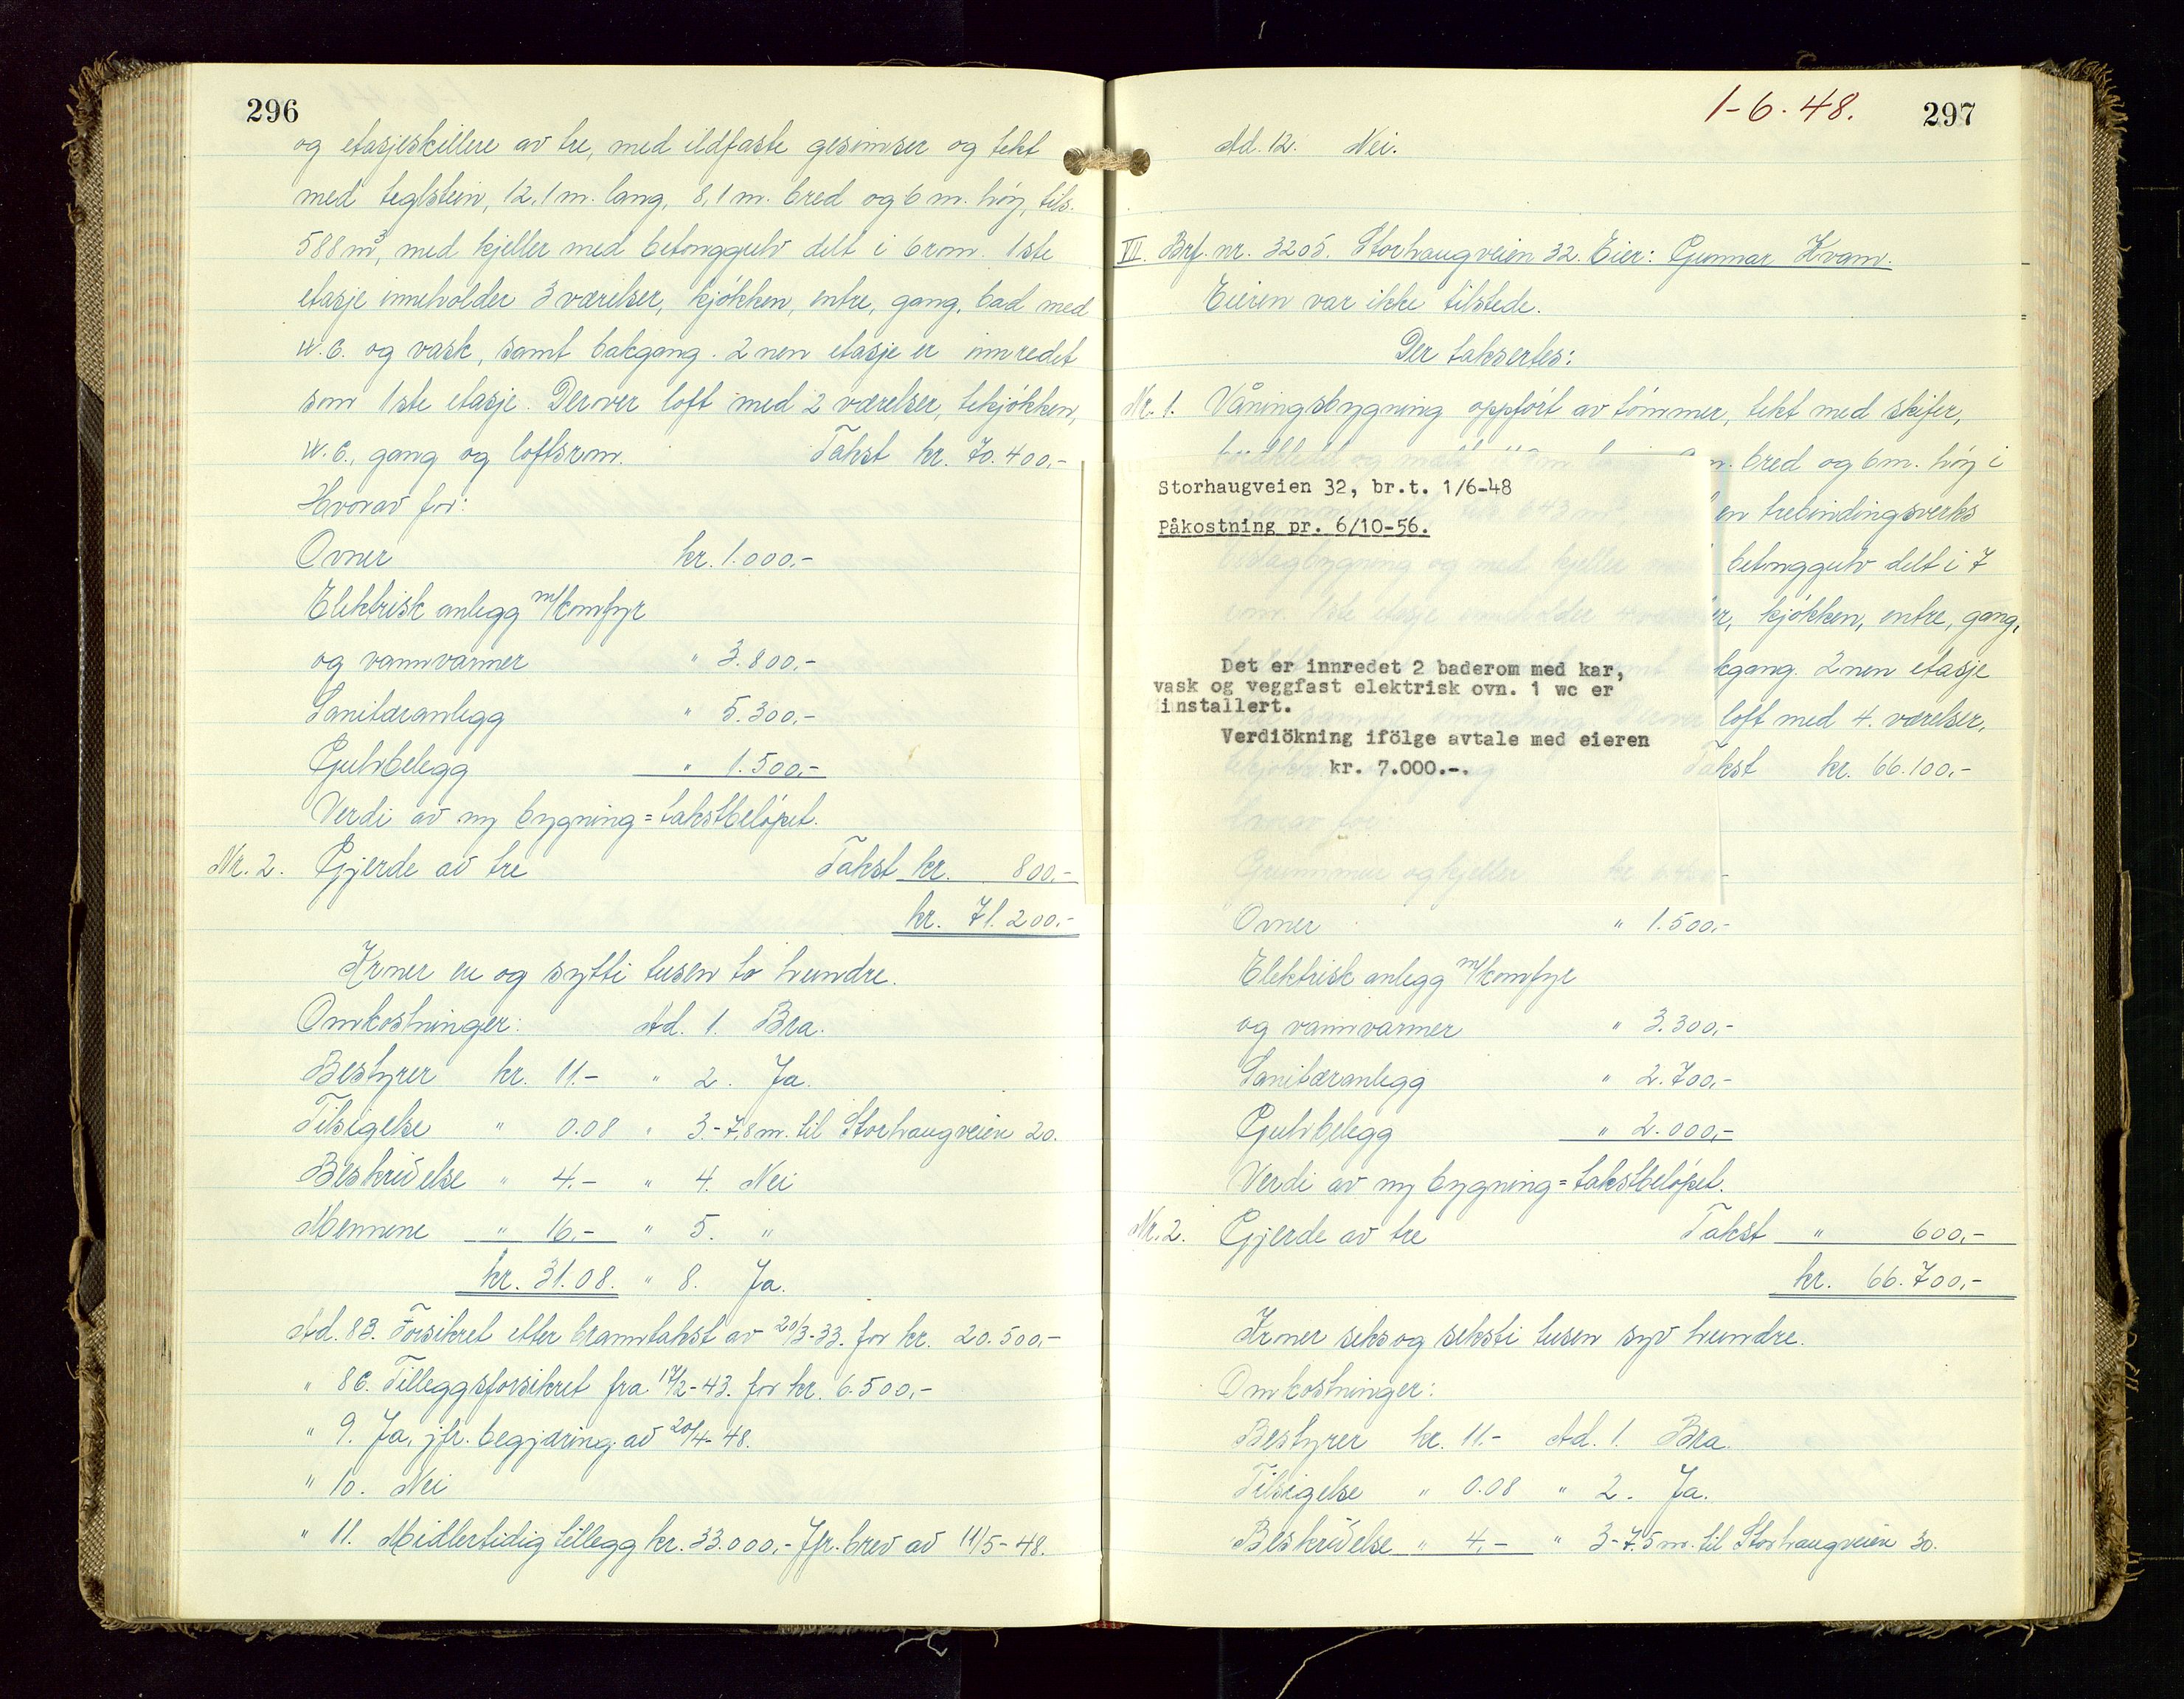 296
og etasjeskillere av tre, med ildfaste gesimser og tekt
med teglstein, 12,1 m. lang, 8,1 m. bred og 6 m. høy, tils.
588 m³, med kjeller med betonggulv delt i 6 rom. 1ste
etasje inneholder 3 værelser, kjøkken, entre, gang, bad med
W.C. og vask, samt bakgang. 2nen etasje er innredet
som 1ste etasje. Derover loft med 2 værelser, tekjøkken,
W.C., gang og loftsrom. Takst kr. 70.400,-
Hvorav for:
Ovner kr. 1.000,-
Elektrisk anlegg m/komfyr
og vannvarmer " 3.800,-
Sanitæranlegg " 5.300,-
Gulvbelegg " 1.500,-
Verdi av ny bygning = takstbeløpet.
Nr. 2. Gjerde av tre Takst kr. 800,-
kr. 71.200,-
Kroner en og sytti tusen to hundre.
Omkostninger: Ad. 1. Bra.
Bestyrer kr. 11.- " 2. Ja.
Tilsigelse " 0.08 " 3.- 7,8 m. til Storhaugveien 20.
Beskrivelse " 4.- " 4. Nei
Mennene " 16.- " 5. "
kr. 31.08. " 8. Ja.
Ad. 8B. Forsikret etter branntakst av 20/3-33. for kr. 20.500,-
" 8C. Tilleggsforsikret fra 17/2-43. for kr. 6.500,-
" 9. Ja, jfr. begjæring av 20/4-48.
" 10. Nei
" 11. Midlertidig tillegg kr. 33.000,- Jfr. brev av 11/5-48.
1-6.48. 297
Ad. 12. Nei.
VII. Brf. nr. 3205. Storhaugveien 32. Eier: Gunnar Kvam.
Eieren var ikke tilstede.
Der taksertes:
Nr. 1. Våningsbygning oppført av tømmer, tekt med skifer,
m. bred og 6 m. høy i
Storhaugveien 32, br.t. 1/6-48
en trebindingsverks
Påkostning pr. 6/10-56.
betonggulv delt i 7
er, kjøkken, entre, gang,
Det er innredet 2 baderom med kar,
kgang. 2nen etasje
vask og veggfast elektrisk ovn. 1 wc er
installert.
loft med 4. værelser,
Verdiökning ifölge avtale med eieren
kr. 7.000.-.
Takst kr. 66.100,-
Grunnmur og kjeller kr.
Ovner " 1.500,-
Elektrisk anlegg m/komfyr
og vannvarmer " 3.300,-
Sanitæranlegg " 2.700,-
Gulvbelegg " 2.000,-
Verdi av ny bygning = takstbeløpet.
Nr. 2. Gjerde av tre Takst " 600,-
kr. 66.700,-
Kroner seks og seksti tusen syv hundre.
Omkostninger:
Bestyrer kr. 11.- Ad. 1. Bra.
Tilsigelse " 0.08 " 2. Ja.
Beskrivelse " 4,- " 3- 7.5 m. til Storhaugveien 30.